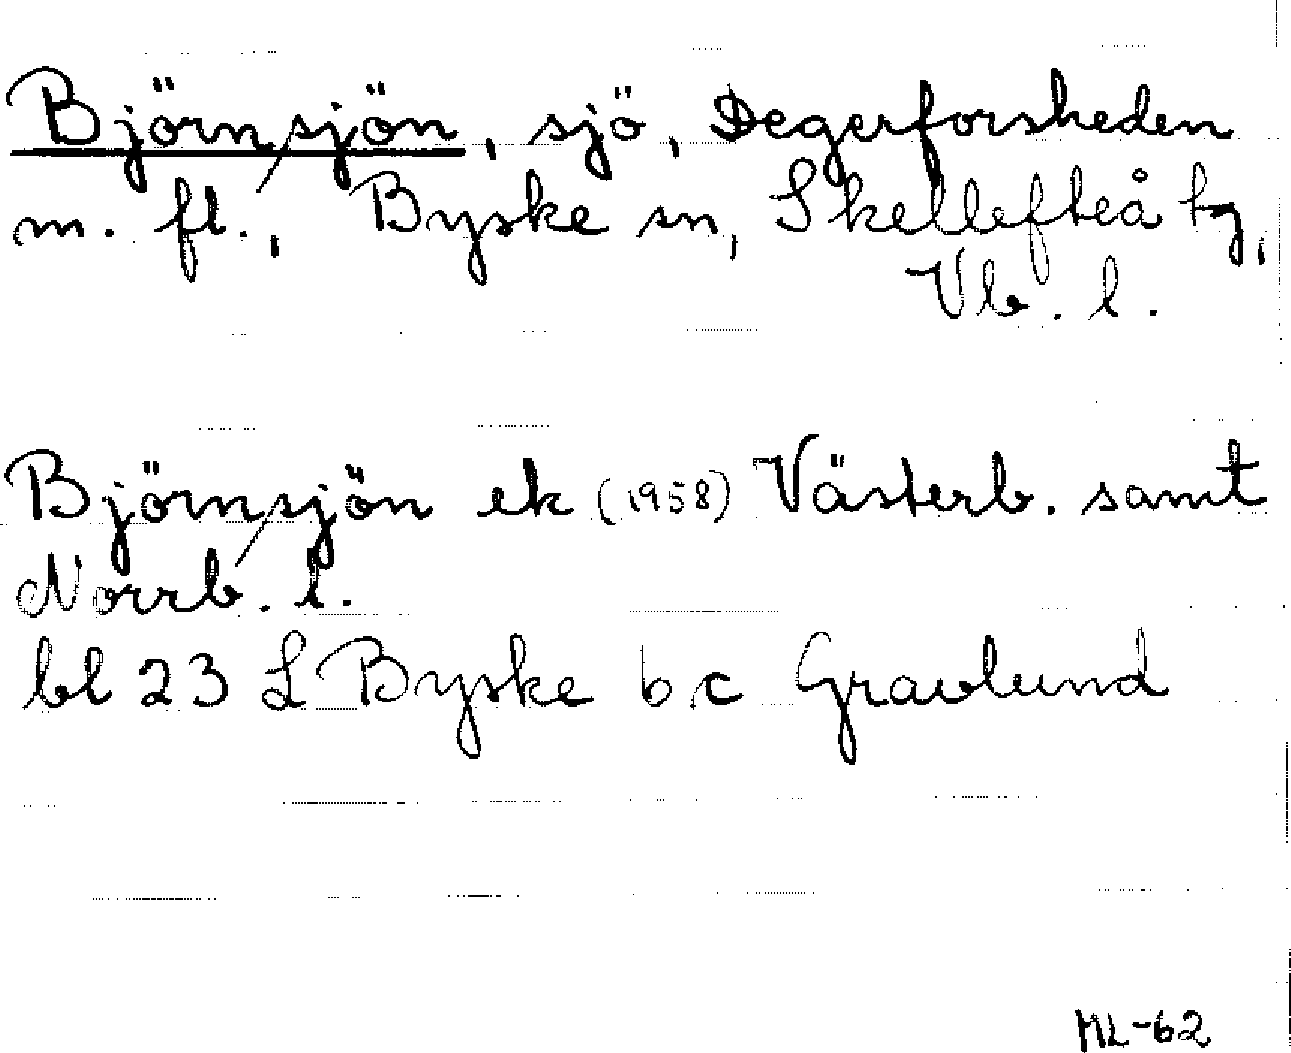 Björnsjön, sjö, Degerforsheden
m. fl., Byske sn, Skellefteå tg,
Vb. l.
Björnsjön ek (1958) Västerb. samt
Norrb. l.
bl 23 L Byske b c Gravlund
ML-62